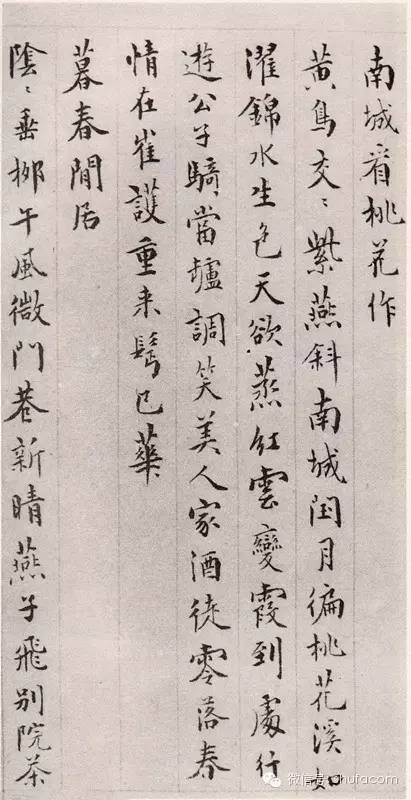 南城看桃花作
黄鳥交〻紫燕斜南城閏月徧桃花溪如
濯錦水生色天欲蒸紅雲變霞到處行
遊公子騎當壚調笑美人家酒徒零落春
情在崔護重来鬂已華
暮春閒居
陰〻垂桺午風微門巷新晴燕子飛别院茶
微信号: shufacom